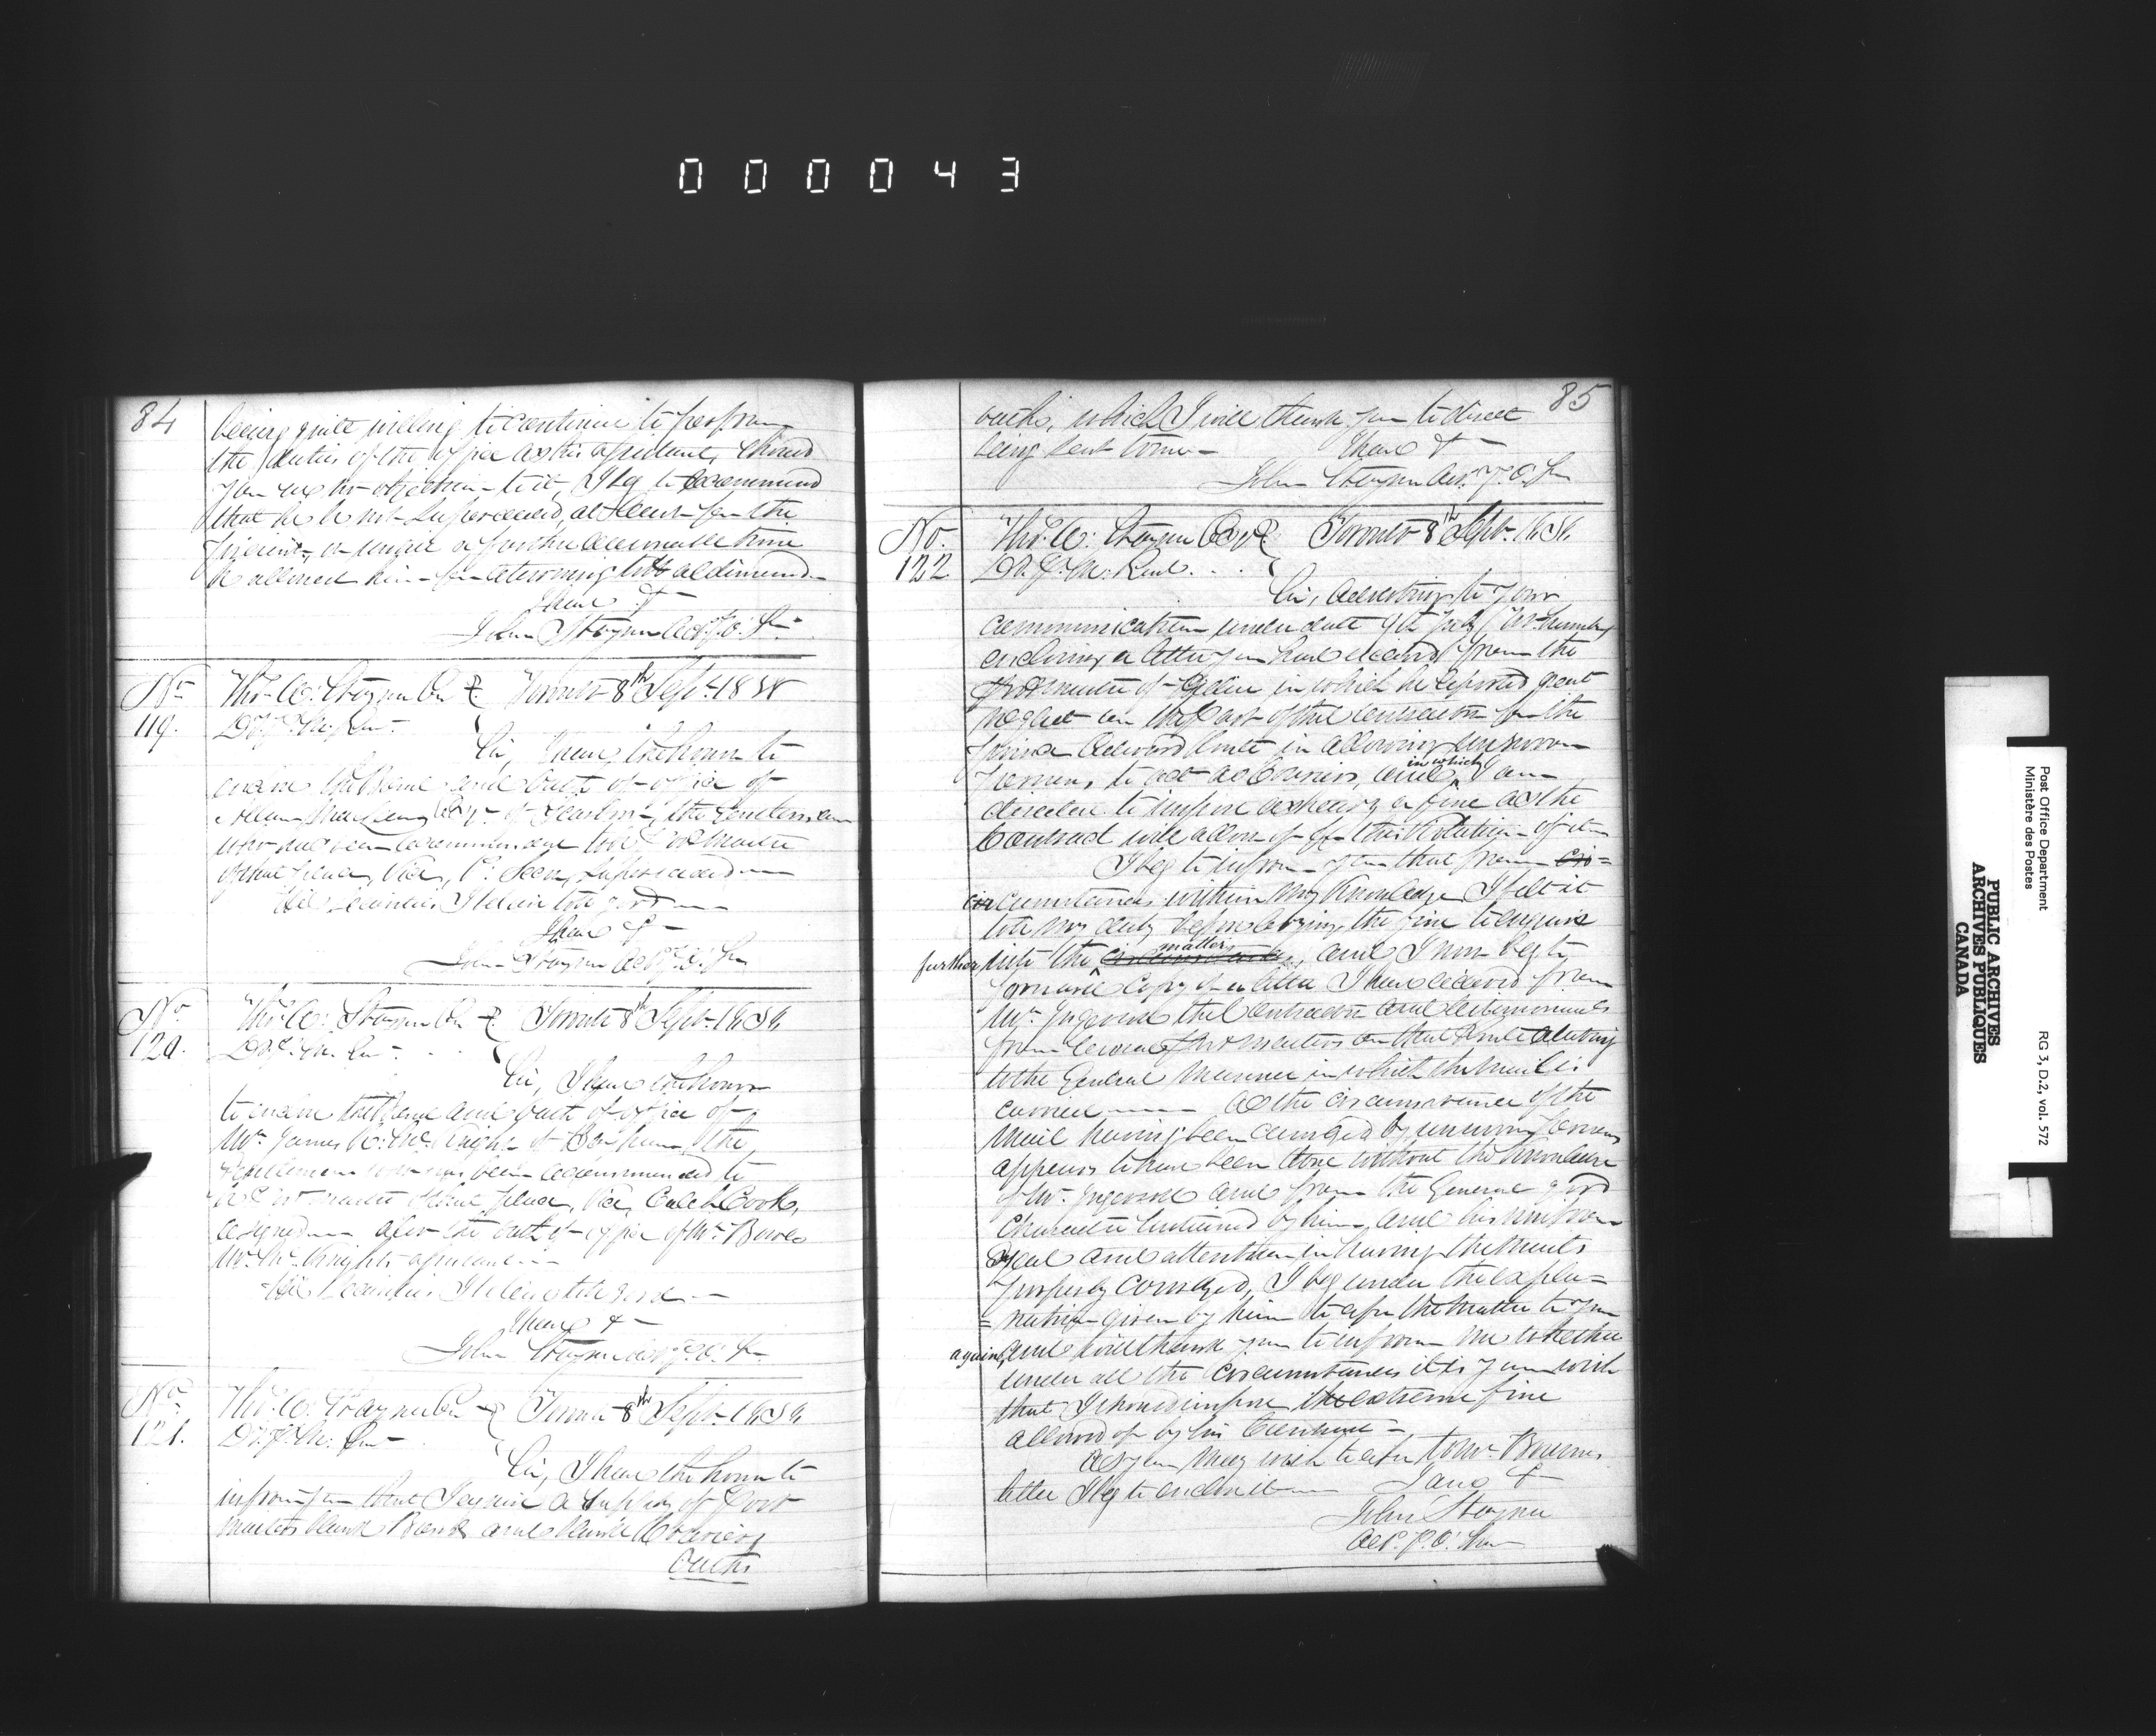 000043
84
being quite willing to continue to perform
the duties of the office as his assistant, should
you see no objection to it, I beg to recommend
that he be not superseded, at least for the
present, or unique a further reasonable time
be allowed him for returning to
I have &
John Stayner Act. P. O. Sur
No
119.
Thos. A. Stayner Esqr Toronto 8th Sept. 1838
D. P. M. Genl.
Sir, I have the honor to
enclose the Bond and Oath of office of
Allan Esqr. of the Gentleman
who has been recommended to be Postmaster
of that place, vice, superseded
His Securities I believe to be good
I have &
John Stayner Act P. O. Sur
No
120.
Thos. A. Stayner Esqr Toronto 8th Sept. 1838
D. P. M. Genl.
Sir, I have the honor
to enclose the Bond and Oath of office of
Mr. James of the
Gentleman who has been recommended to
be Postmaster of that place, vice, Caleb Cook,
resigned also the Oath of office of Mr.
Mr. assistant
His Securities I believe to be good
I have &
John Stayner Act P. O. Sur
No.
121.
Thos. A. Stayner Esqr Toronto 8th Sept. 1838
D. P. M. Genl
Sir, I have the honor to
inform you that I require a supply of Post
masters blank Bonds and blank Couriers
Oaths
85
oaths, which I will thank you to direct
being sent to me
I have &
John Stayner Act. P. O. Sur
No.
122.
Thos. A. Stayner Esqr Toronto 8th Sept. 1838
D. P. M. Genl.
Sir, Adverting to your
communication under date 9th July (no number)
enclosing a letter you had received from the
Postmaster of in which he reported great
neglect on the part of the Contractor for the
route in allowing unsworn
persons to act as Couriers, and in which I am
directed to impose as heavy a fine as the
Contract will allow of for this violation of it
I beg to inform you that from cir=
circumstances within my knowledge I felt it
to be my duty before levying the fine to enquire
further into the circumstances matter, and I now beg to
forward copy of a letter I have received from
Mr. Ingersoll the Contractor and testimonials
from several Postmasters on that route relating
to the General manner in which the mail is
carried as the circumstance of the
mail having been carried by unsworn persons
appears to have been done without the knowledge
of Mr. Ingersoll and from the General good
Character sustained by him, and his uniform
zeal and attention in having the mails
properly conveyed, I beg under the expla=
=nation given by him to refer the matter to you
again, and will thank you to inform me whether
under all the circumstances it is your wish
that I should impose the extreme fine
allowed of by his Contract
As you may wish to refer to Mr.
letter I beg to enclose it I am &
John Stayner
Act. P. O. Sur
Post Office Department
Ministère des Postes
RG 3, D.2, vol. 572
PUBLIC ARCHIVES
ARCHIVES PUBLIQUES
CANADA